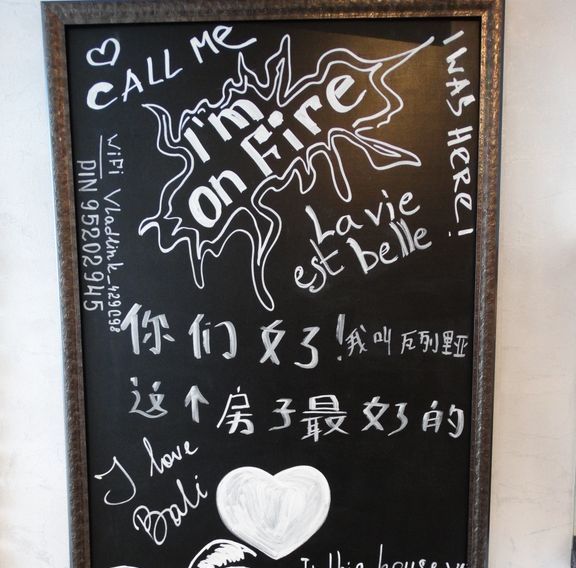 CALL ME
I'm
on Fire
I WAS HERE!
WiFi Vladlink_429098
PIN 95202945
La vie
est belle
你们好!我叫瓦列里亚
这个房子最好的
I love
Bali